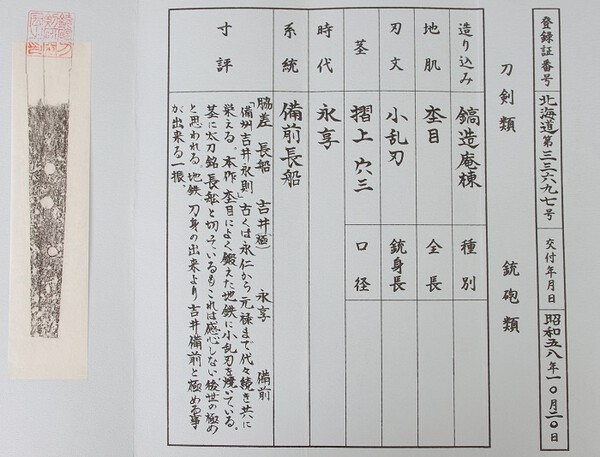 登録証番号 北海道第三三六九七号 交付年月日 昭和五八年一〇月二〇日
刀剣類 銃砲類
造り込み 鎬造庵棟 種別
地肌 杢目 全長
刃文 小乱刃 銃身長
茎 摺上 穴三 口径
時代 永享
系統 備前長船
寸評
脇差 長船 吉井(極) 永享 備前
「備州吉井永則」古くは永仁から元禄まで代々続き共に
栄える。本作 杢目によく鍛えた地鉄に小乱刃を焼いている。
茎に太刀銘長船と切っているもこれは感心しない後世の極め
と思われる。地鉄 刀身の出来より吉井備前と極める事
が出来る一振。